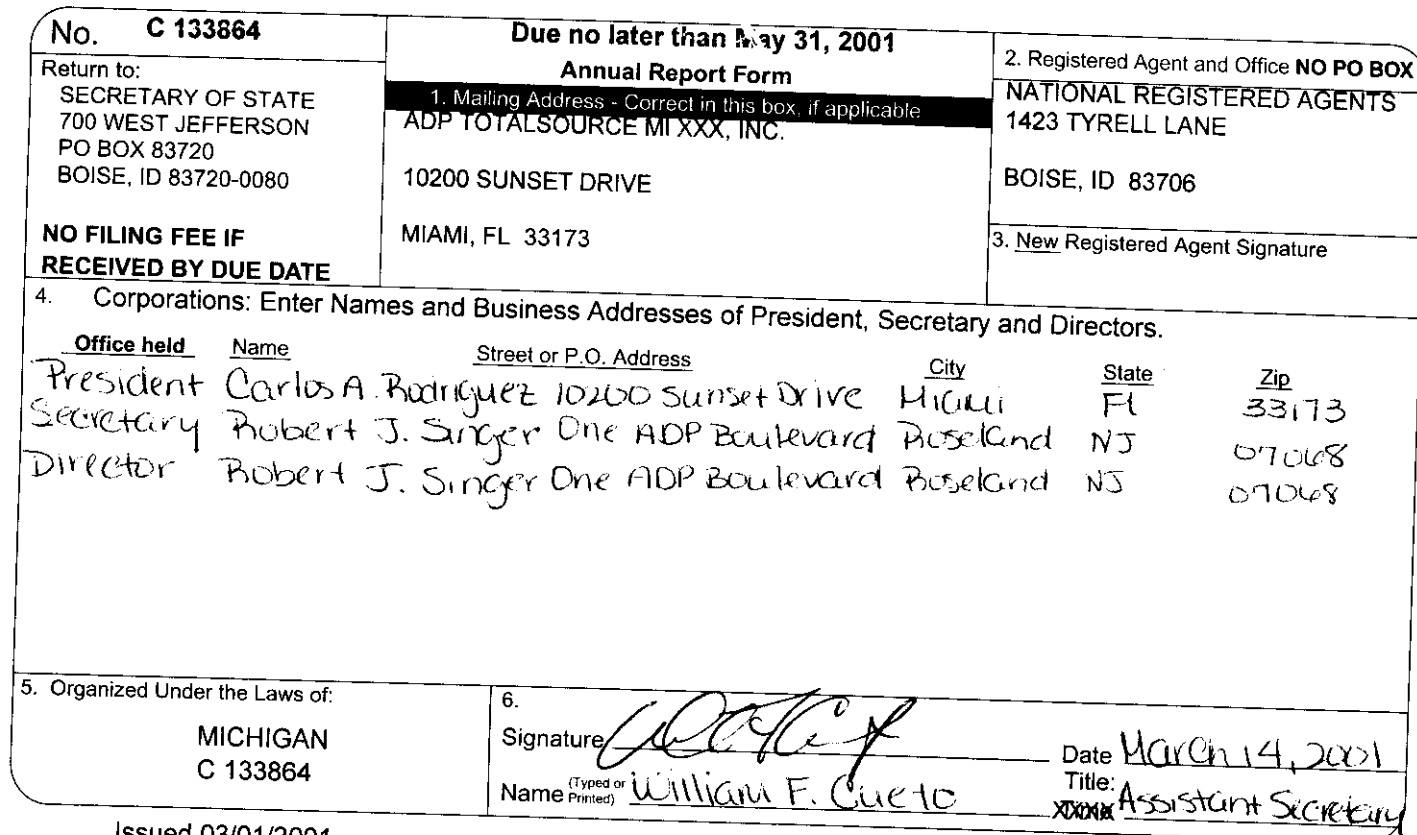 No. C 133864
Return to:
SECRETARY OF STATE
700 WEST JEFFERSON
PO BOX 83720
BOISE, ID 83720-0080
NO FILING FEE IF
RECEIVED BY DUE DATE
Due no later than May 31, 2001
Annual Report Form
1. Mailing Address - Correct in this box, if applicable
ADP TOTALSOURCE MI XXX, INC.
10200 SUNSET DRIVE
MIAMI, FL 33173
2. Registered Agent and Office NO PO BOX
NATIONAL REGISTERED AGENTS
1423 TYRELL LANE
BOISE, ID 83706
3. New Registered Agent Signature
4. Corporations: Enter Names and Business Addresses of President, Secretary and Directors.
Office held Name Street or P.O. Address City State Zip
President Carlos A. Rodriguez 10200 Sunset Drive Miami Fl 33173
Secretary Robert J. Singer One ADP Boulevard Roseland NJ 07068
Director Robert J. Singer One ADP Boulevard Roseland NJ 07068
5. Organized Under the Laws of:
MICHIGAN
C 133864
6.
Signature
Date March 14, 2001
Name (Typed or Printed) William F. Cueto
Title: Assistant Secretary
Issued 03/01/2001